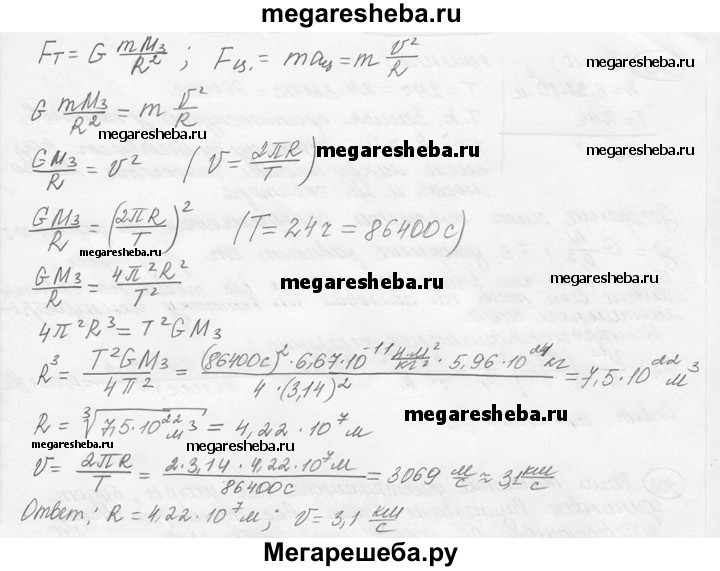 megaresheba.com
Fт = G mMз/R² ; Fц. = maц = m v²/R
megaresheba.com
G mMз/R² = m v²/R
megaresheba.com
GMз/R = v² (v = 2πR/T)
megaresheba.com
GMз/R = (2πR/T)² (T = 24ч = 86400с)
megaresheba.com
GMз/R = 4π²R²/T²
megaresheba.com
4π²R³ = T²GMз
megaresheba.com
R³ = T²GMз/4π² = (86400с)²·6,67·10¹¹ Н·м²/кг²·5,96·10²⁴кг/4·(3,14)² = 7,5·10²²м³
R = ³√7,5·10²²м³ = 4,22·10⁷м
megaresheba.com
megaresheba.com
megaresheba.com
v = 2πR/T = 2·3,14·4,22·10⁷м/86400с = 3069 м/с ≈ 3,1 км/с
Ответ: R = 4,22·10⁷м; v = 3,1 км/с
Мегарешеба.ру